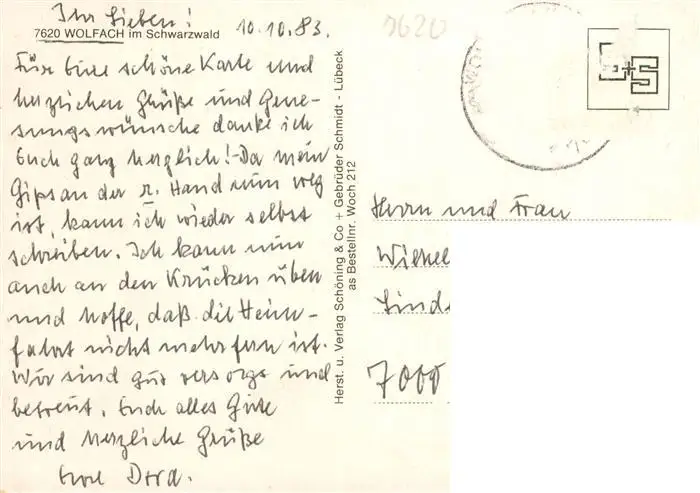 Ihr Lieben!
10.10.83.
7620 WOLFACH im Schwarzwald
Für Eure schöne Karte und
herzlichen Grüße und Gene-
sungswünsche danke ich
Euch ganz herzlich! - Da mein
Gips an der r. Hand nun weg
ist, kann ich wieder selbst
schreiben. Ich kann nun
auch an den Krücken üben
und hoffe, daß die Heim-
fahrt nicht mehr fern ist.
Wir sind gut versorgt und
betreut. Euch alles Gute
und herzliche Grüße
Eure Dora.
Herst. u. Verlag Schöning & Co + Gebrüder Schmidt - Lübeck
as Bestellnr. Woch 212
7620
S+S
Herrn und Frau
7000